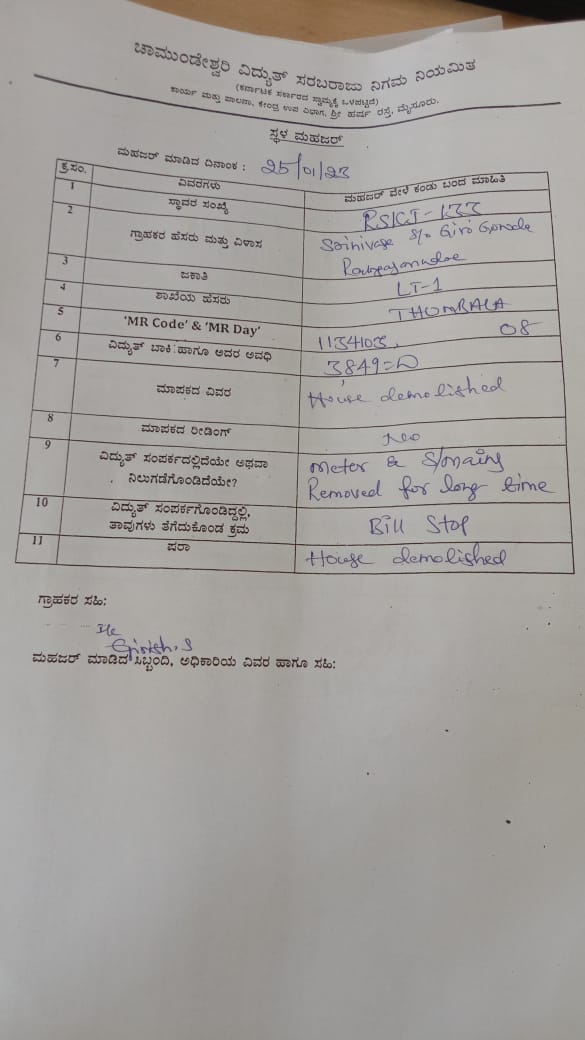 ಚಾಮುಂಡೇಶ್ವರಿ ವಿದ್ಯುತ್ ಸರಬರಾಜು ನಿಗಮ ನಿಯಮಿತ
(ಕರ್ನಾಟಕ ಸರ್ಕಾರದ ಸ್ವಾಮ್ಯಕ್ಕೆ ಒಳಪಟ್ಟಿದೆ)
ಕಾರ್ಯ ಮತ್ತು ಪಾಲನಾ, ಕೇಂದ್ರ ಉಪ ವಿಭಾಗ, ಶ್ರೀ ಹರ್ಷ ರಸ್ತೆ, ಮೈಸೂರು.
ಸ್ಥಳ ಮಹಜರ್
ಮಹಜರ್ ಮಾಡಿದ ದಿನಾಂಕ : 25/01/23
ಕ್ರ.ಸಂ. ವಿವರಗಳು ಮಹಜರ್ ವೇಳೆ ಕಂಡು ಬಂದ ಮಾಹಿತಿ
1 ಸ್ಥಾವರ ಸಂಖ್ಯೆ
2 ಗ್ರಾಹಕರ ಹೆಸರು ಮತ್ತು ವಿಳಾಸ Srinivasa S/o Giri Gowda
3 ಜಕಾತಿ LT-1
4 ಶಾಖೆಯ ಹೆಸರು
5 'MR Code' & 'MR Day' 1134103, 08
6 ವಿದ್ಯುತ್ ಬಾಕಿ ಹಾಗೂ ಅದರ ಅವಧಿ 3849=00
7 ಮಾಪಕದ ವಿವರ House demolished
8 ಮಾಪಕದ ರೀಡಿಂಗ್
9 ವಿದ್ಯುತ್ ಸಂಪರ್ಕದಲ್ಲಿದೆಯೇ ಅಥವಾ meter & S/mains
ನಿಲುಗಡೆಗೊಂಡಿದೆಯೇ? Removed for long time
10 ವಿದ್ಯುತ್ ಸಂಪರ್ಕಗೊಂಡಿದ್ದಲ್ಲಿ,
ತಾವುಗಳು ತೆಗೆದುಕೊಂಡ ಕ್ರಮ Bill Stop
11 ಷರಾ House demolished
ಗ್ರಾಹಕರ ಸಹಿ:
Girish.S
ಮಹಜರ್ ಮಾಡಿದ ಸಿಬ್ಬಂದಿ, ಅಧಿಕಾರಿಯ ವಿವರ ಹಾಗೂ ಸಹಿ: